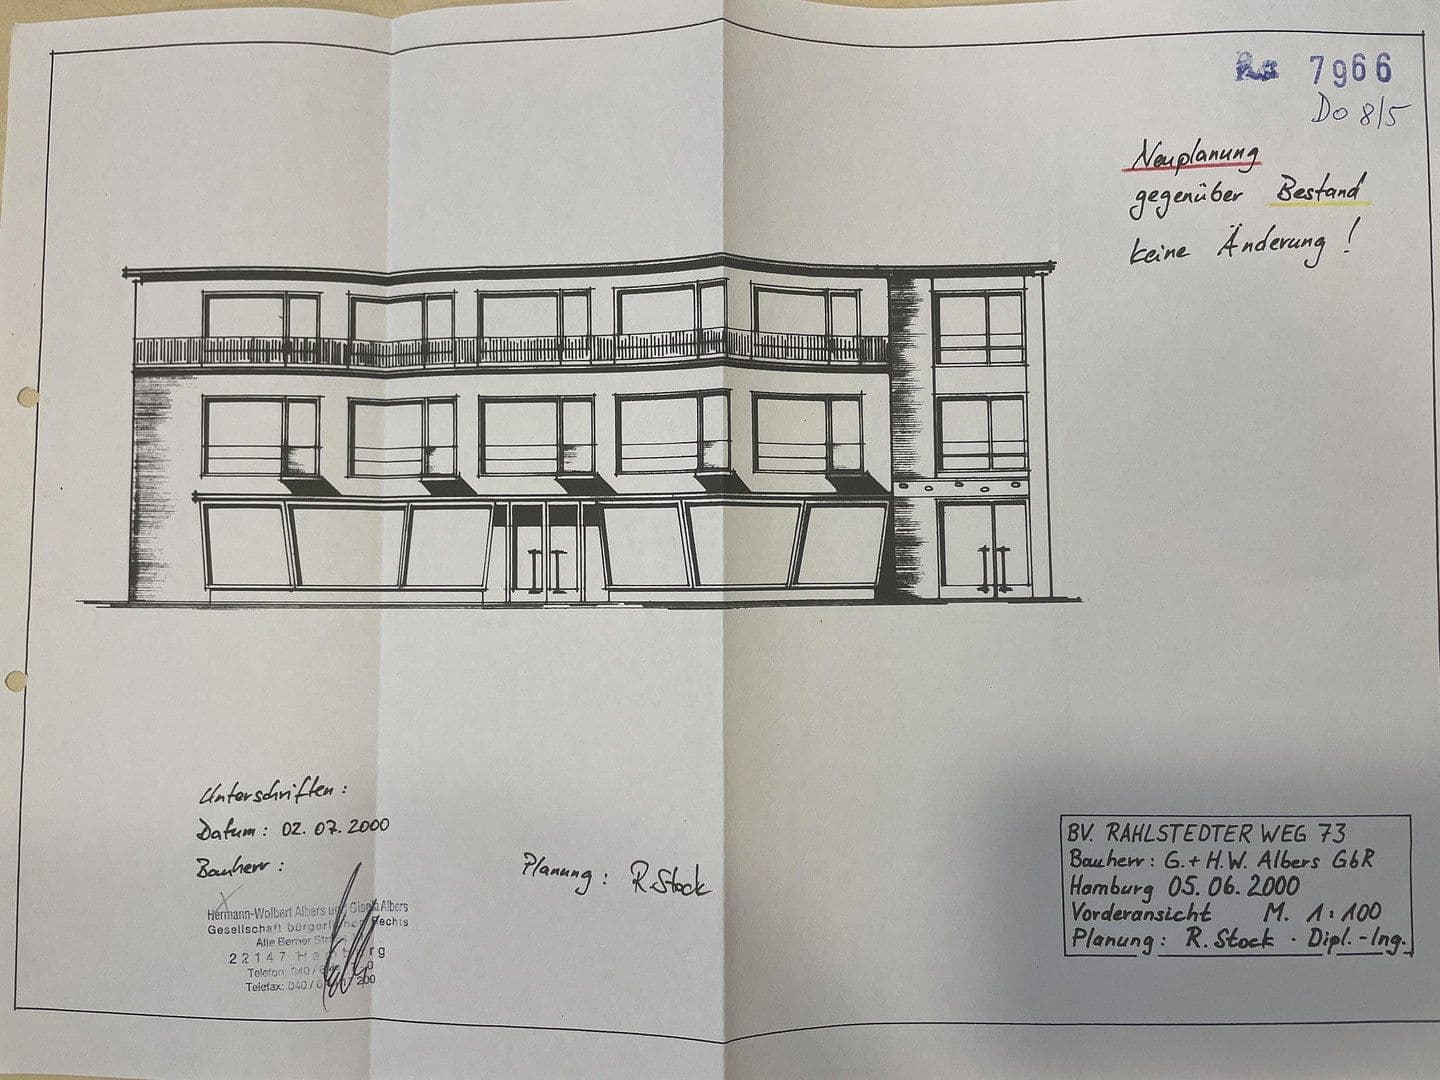 7966
Do 8/5
Neuplanung
gegenüber Bestand
keine Änderung !
Unterschriften :
Datum : 02.07.2000
Bauherr :
Hermann-Wolbert Albers und Gisela Albers
Gesellschaft bürgerlichen Rechts
Alte Berner
22147
Telefon: 040/
Telefax: 040/
Planung : R. Stock
BV. RAHLSTEDTER WEG 73
Bauherr : G. + H.W. Albers GbR
Hamburg 05.06.2000
Vorderansicht M. 1:100
Planung : R. Stock · Dipl.-Ing.